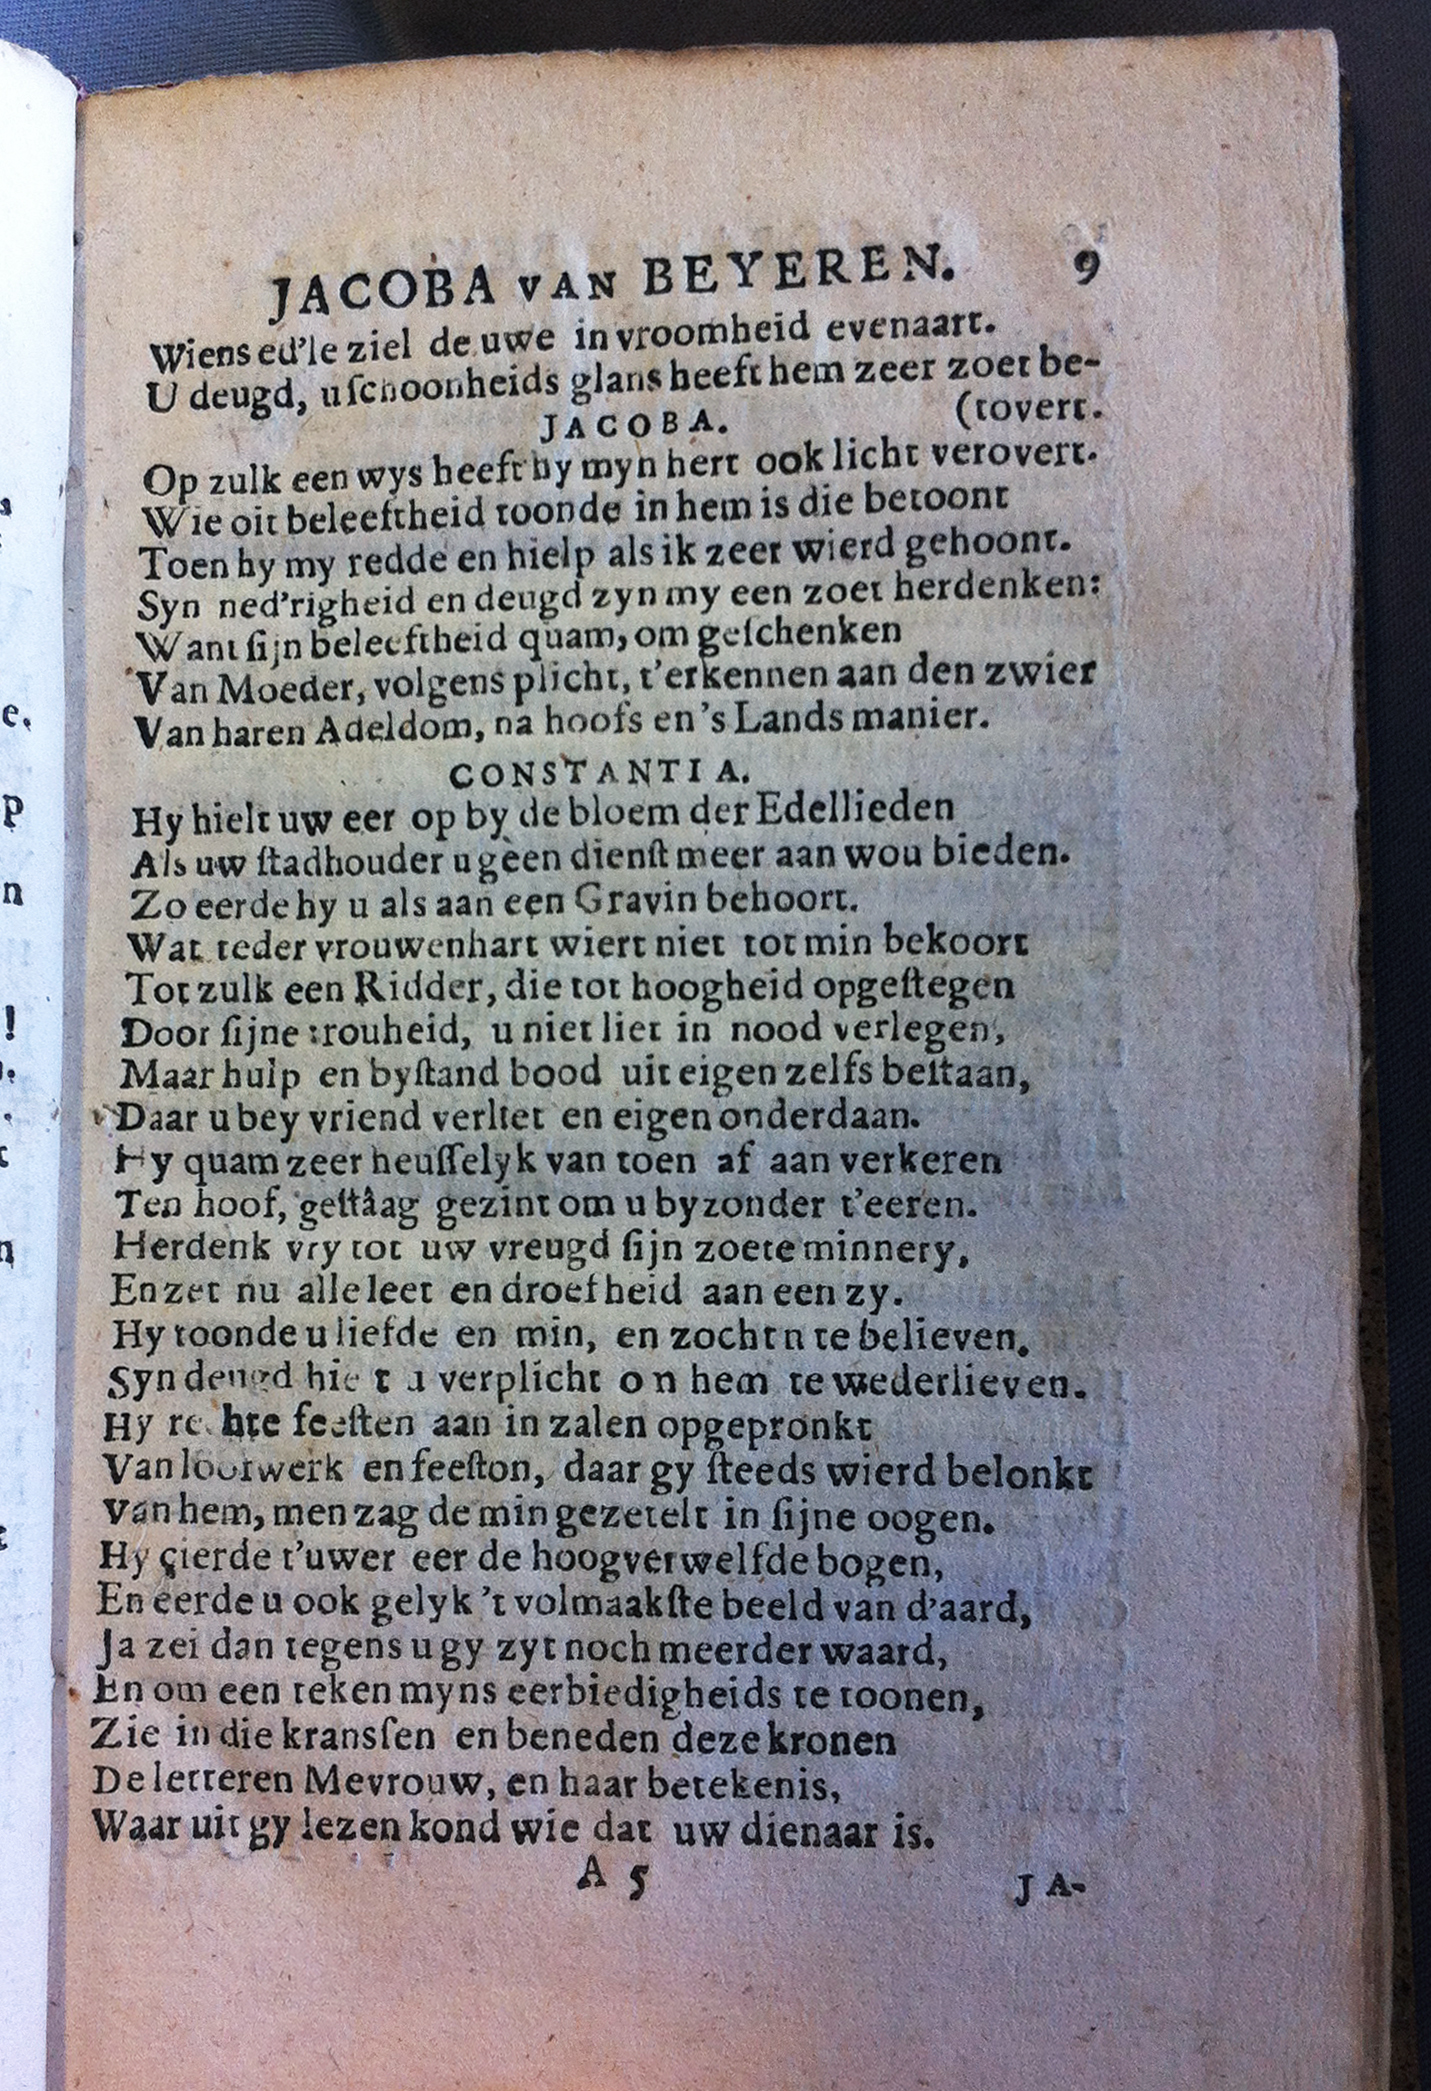 JACOBA VAN BEYEREN. 9
Wiens ed'le ziel de uwe in vroomheid evenaart.
U deugd, u ſchoonheids glans heeft hem zeer zoet be-
(tovert.
JACOBA.
Op zulk een wys heeft hy myn hert ook licht verovert.
Wie oit beleeftheid toonde in hem is die betoont
Toen hy my redde en hielp als ik zeer wierd gehoont.
Syn ned'righeid en deugd zyn my een zoet herdenken:
Want ſijn beleeftheid quam, om geſchenken
Van Moeder, volgens plicht, t'erkennen aan den zwier
Van haren Adeldom, na hoofs en 's Lands manier.
CONSTANTIA.
Hy hielt uw eer op by de bloem der Edellieden
Als uw ſtadhouder u geen dienſt meer aan wou bieden.
Zo eerde hy u als aan een Gravin behoort.
Wat teder vrouwenhart wiert niet tot min bekoort
Tot zulk een Ridder, die tot hoogheid opgeſtegen
Door ſijne trouheid, u niet liet in nood verlegen,
Maar hulp en byſtand bood uit eigen zelfs beſtaan,
Daar u bey vriend verliet en eigen onderdaan.
Hy quam zeer heuſſelyk van toen af aan verkeren
Ten hoof, geſtâag gezint om u byzonder t'eeren.
Herdenk vry tot uw vreugd ſijn zoete minnery,
En zet nu alle leet en droefheid aan een zy.
Hy toonde u liefde en min, en zocht n te believen.
Syn deugd hielt u verplicht on hem te wederlieven.
Hy rechte feeſten aan in zalen opgepronkt
Van loofwerk en feeſton, daar gy ſteeds wierd belonkt
Van hem, men zag de min gezetelt in ſijne oogen.
Hy çierde t'uwer eer de hoogverwelfde bogen,
En eerde u ook gelyk 't volmaakſte beeld van d'aard,
Ja zei dan tegens u gy zyt noch meerder waard,
En om een teken myns eerbiedigheids te toonen,
Zie in die kransſen en beneden deze kronen
De letteren Mevrouw, en haar betekenis,
Waar uit gy lezen kond wie dat uw dienaar is.
A 5 JA-